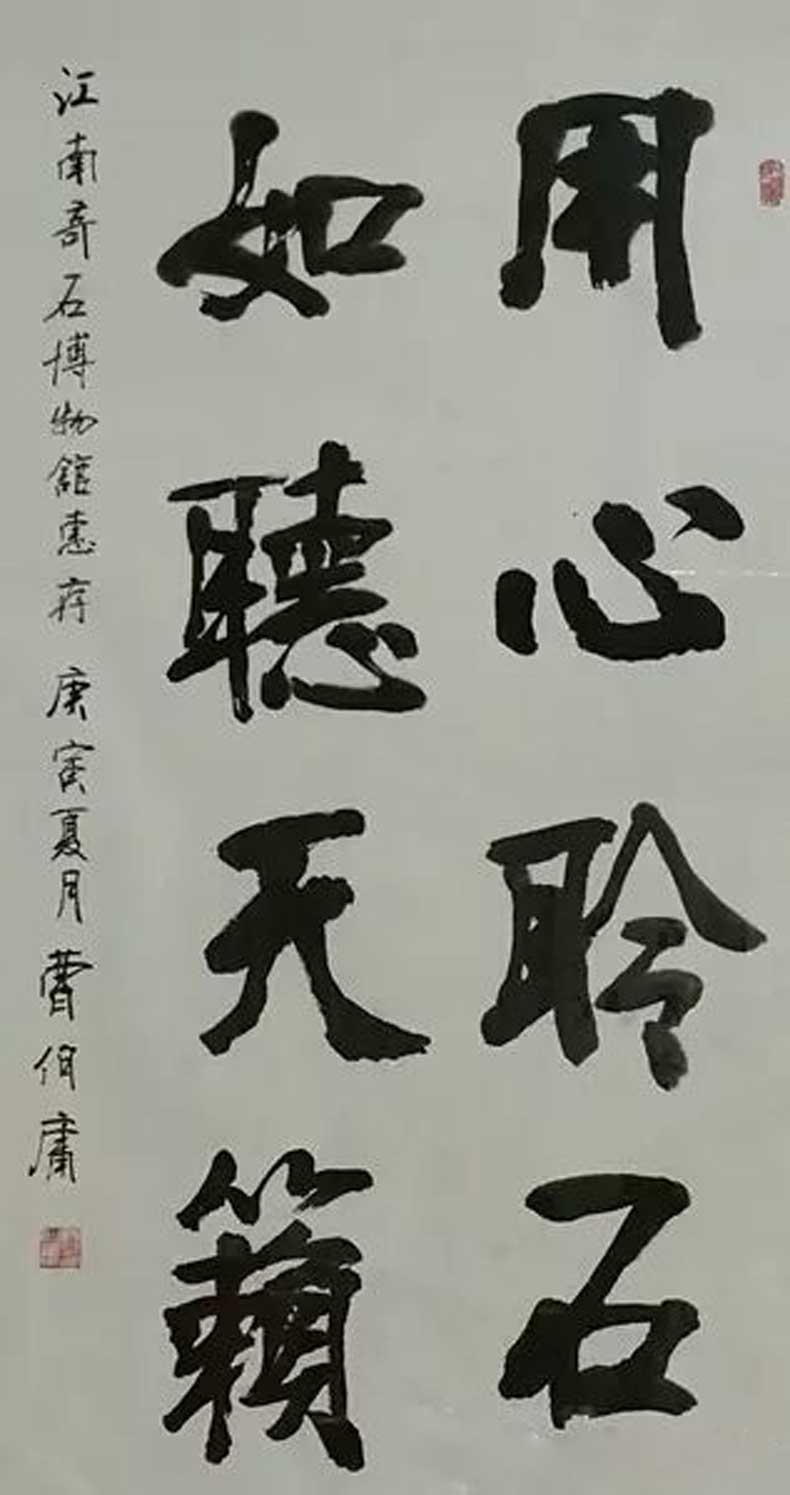 用心聆石
如聽天籟
江南奇石博物館惠存 庚寅夏月 曹伯庸